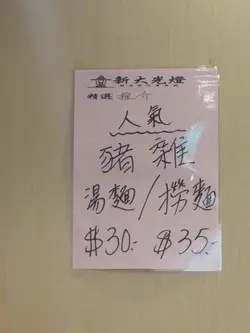 新大光燈
精選 推介
人氣
豬雜
湯麵/撈麵
$30.- $35.-